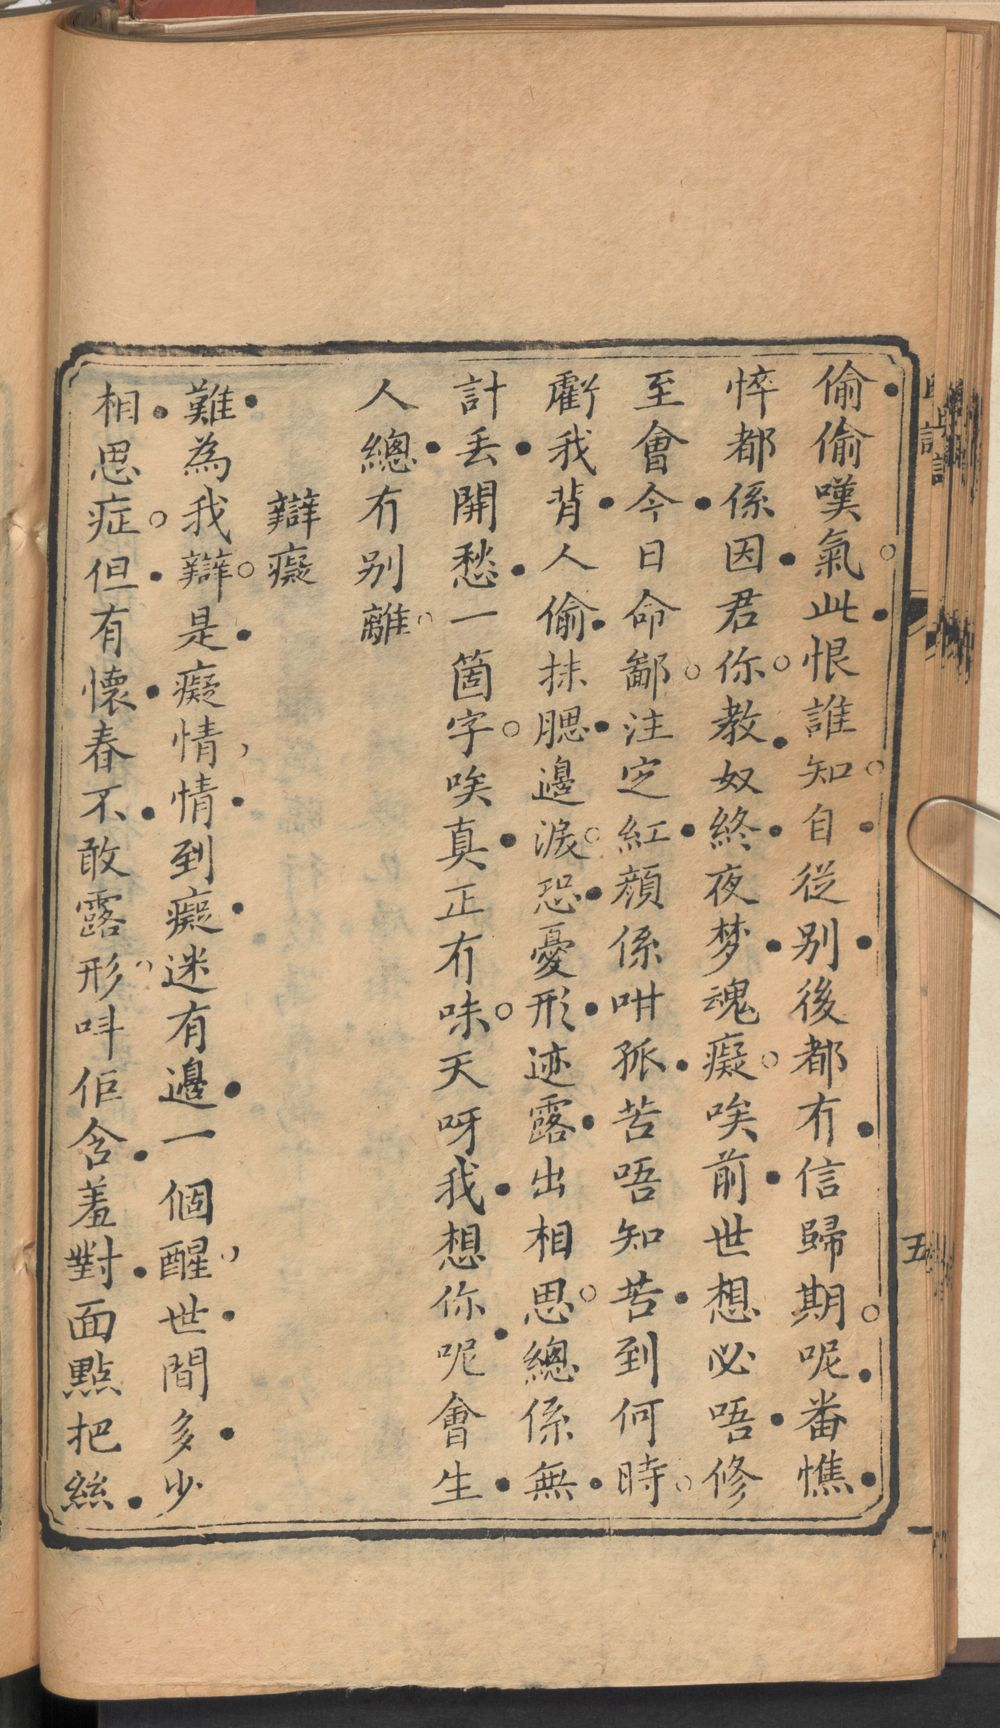 偷偷嘆氣此恨誰知自從别後都冇信歸期呢番憔
悴都係因君你教奴終夜梦魂癡唉前世想必唔修
至會今日命鄙注定紅顔係咁孤苦唔知苦到何時
虧我背人偷抹腮邊淚恐憂形迹露出相思總係無
計丢開愁一箇字唉真正冇味天呀我想你呢會生
人總冇别離
辯癡
難為我辯是癡情情到癡迷有邊一個醒世間多少
相思症但有懷春不敢露形呌佢含羞對面點把絲
五